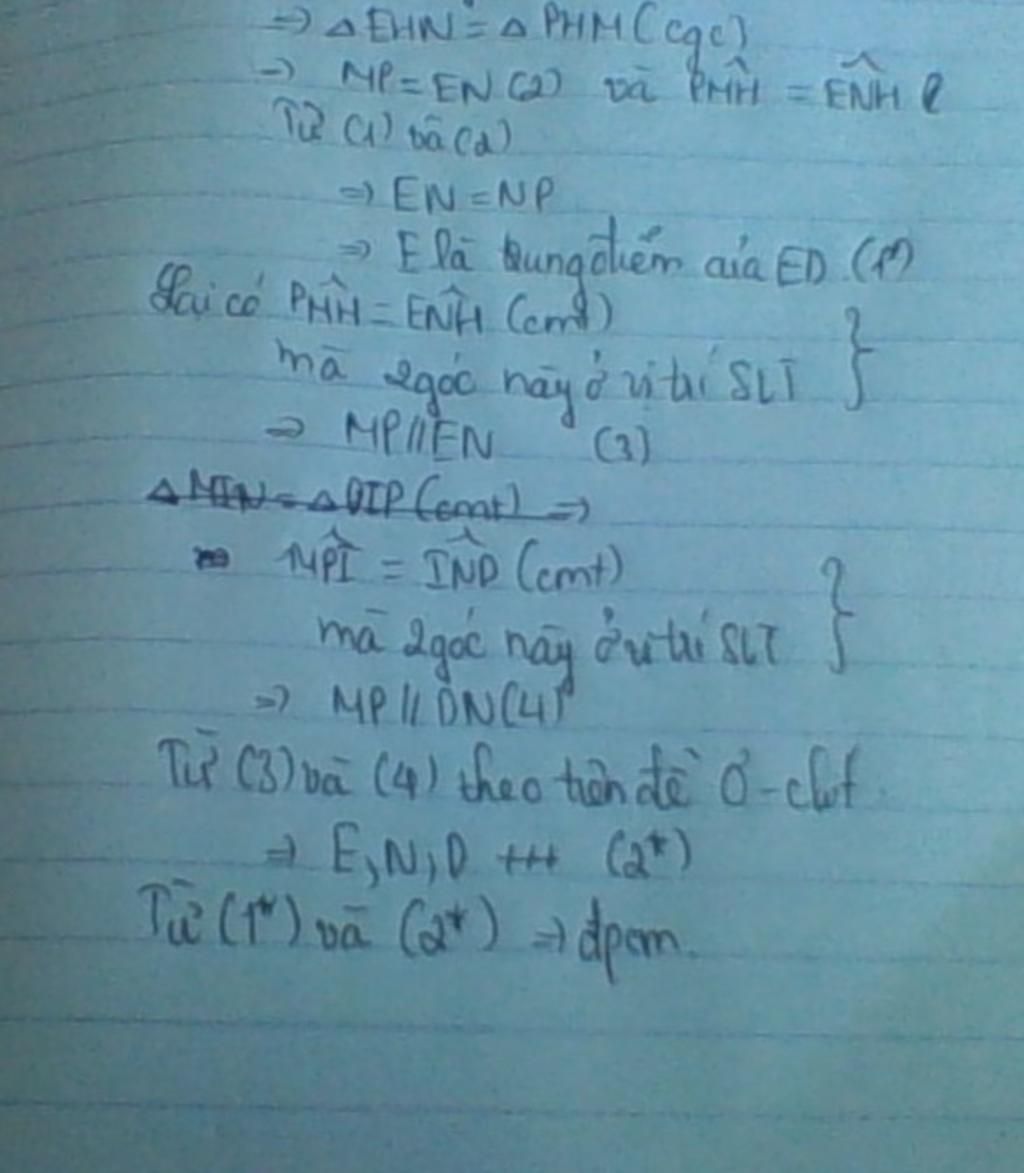 => △EHN = △PHM (cgc)
-> MP = EN (2) và PM̂H = EN̂H
Từ (1) và (2)
=> EN = NP
=> E là trung điểm của ED (1*)
Lại có PM̂H = EN̂H (cmt)
mà 2 góc này ở vị trí SLT }
=> MP // EN (3)
△MIN = △DIP (cmt) =>
MP̂I = IN̂D (cmt)
mà 2 góc này ở vị trí SLT }
=> MP // DN (4)
Từ (3) và (4) theo tiên đề Ơ-clit
=> E, N, D +++ (2*)
Từ (1*) và (2*) => đpcm.